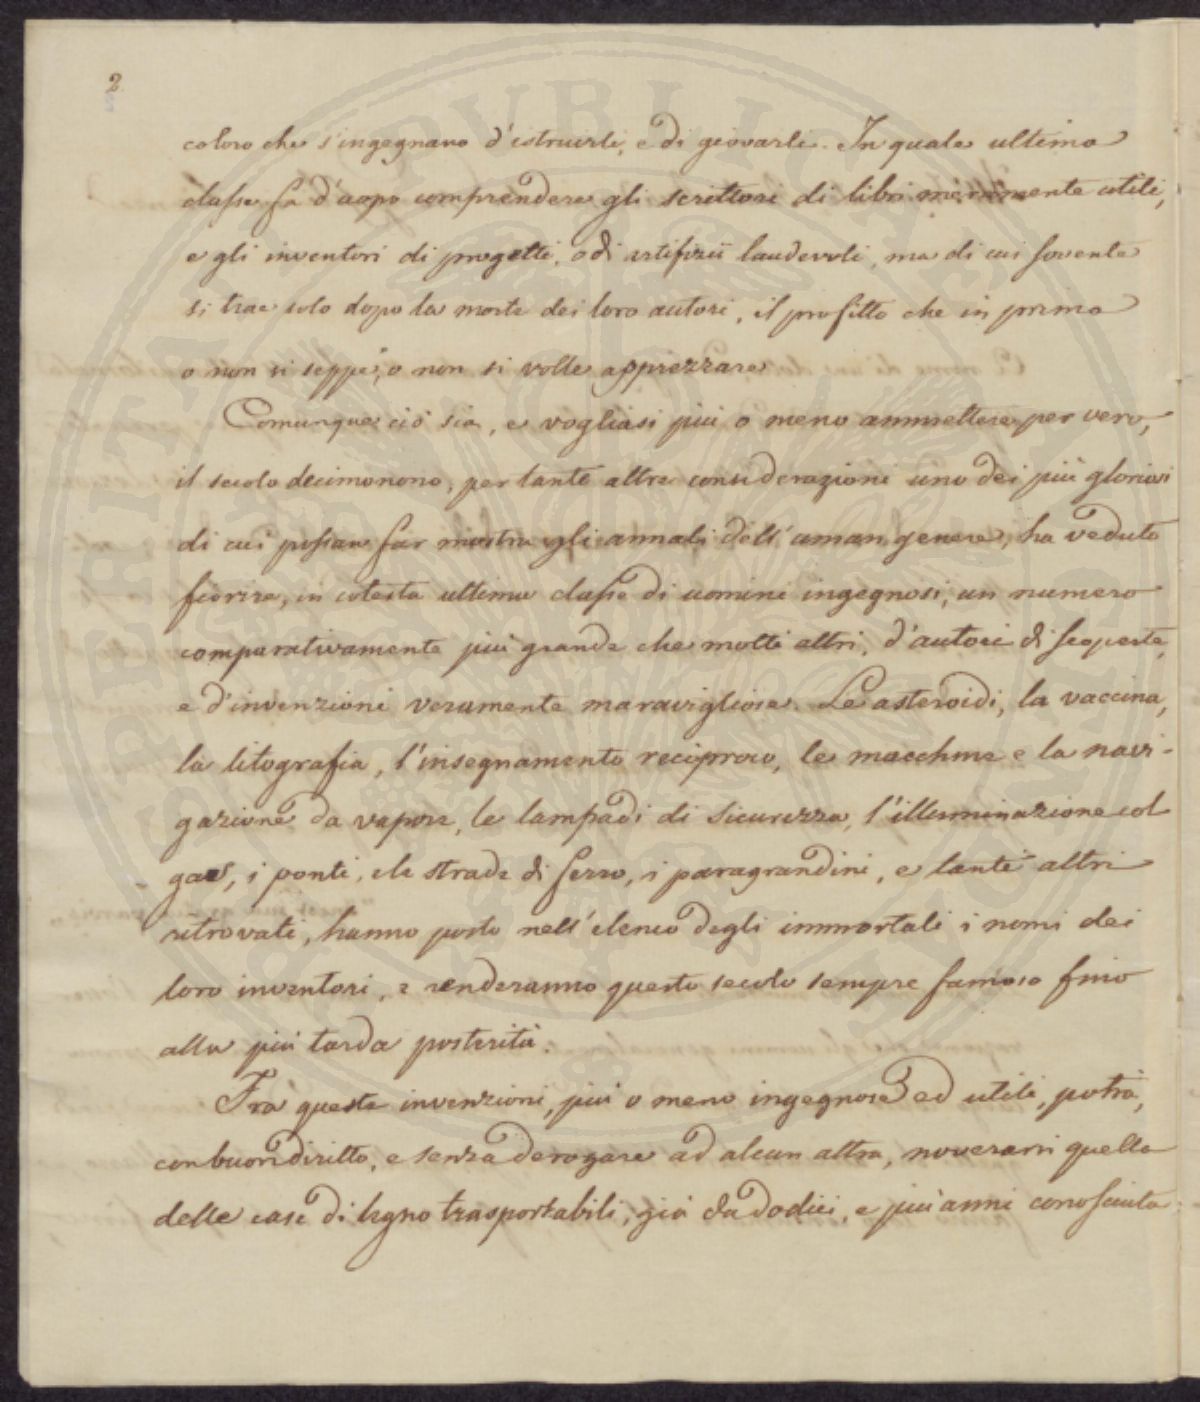 2
coloro che s'ingegnano d'istruirli, e di giovarli. In quale ultima
classe fa d'uopo comprendere gli scrittori di libri meramente utili,
e gli inventori di progetti, o di artifizii laudevoli, ma di cui sovente
si trae solo dopo la morte dei loro autori, il profitto che in prima
o non si seppe, o non si volle apprezzare
Comunque ciò sia, e vogliasi più o meno ammettere per vero,
il secolo decimonono, per tante altre considerazioni uno dei più gloriosi
di cui possan far mostra gli annali dell'uman genere, ha veduto
fiorire, in cotesta ultima classe di uomini ingegnosi, un numero
comparativamente più grande che molti altri, d'autori di scoperte,
e d'invenzioni veramente maravigliose. Le asteroidi, la vaccina,
la litografia, l'insegnamento reciproco, le macchine e la navi-
gazione da vapore, le lampadi di sicurezza, l'illuminazione col
gas, i ponti, e le strade di ferro, i paragrandini, e tanti altri
ritrovati, hanno posto nell'elenco degli immortali i nomi dei
loro inventori, e renderanno questo secolo sempre famoso fino
alla più tarda posterità.
Fra queste invenzioni, più o meno ingegnose ed utili, potrà,
con buon diritto, e senza derogare ad alcun altra, noverarsi quella
delle case di legno trasportabili, già da dodici, e più anni conosciuta
PVBLICA
SPERITA